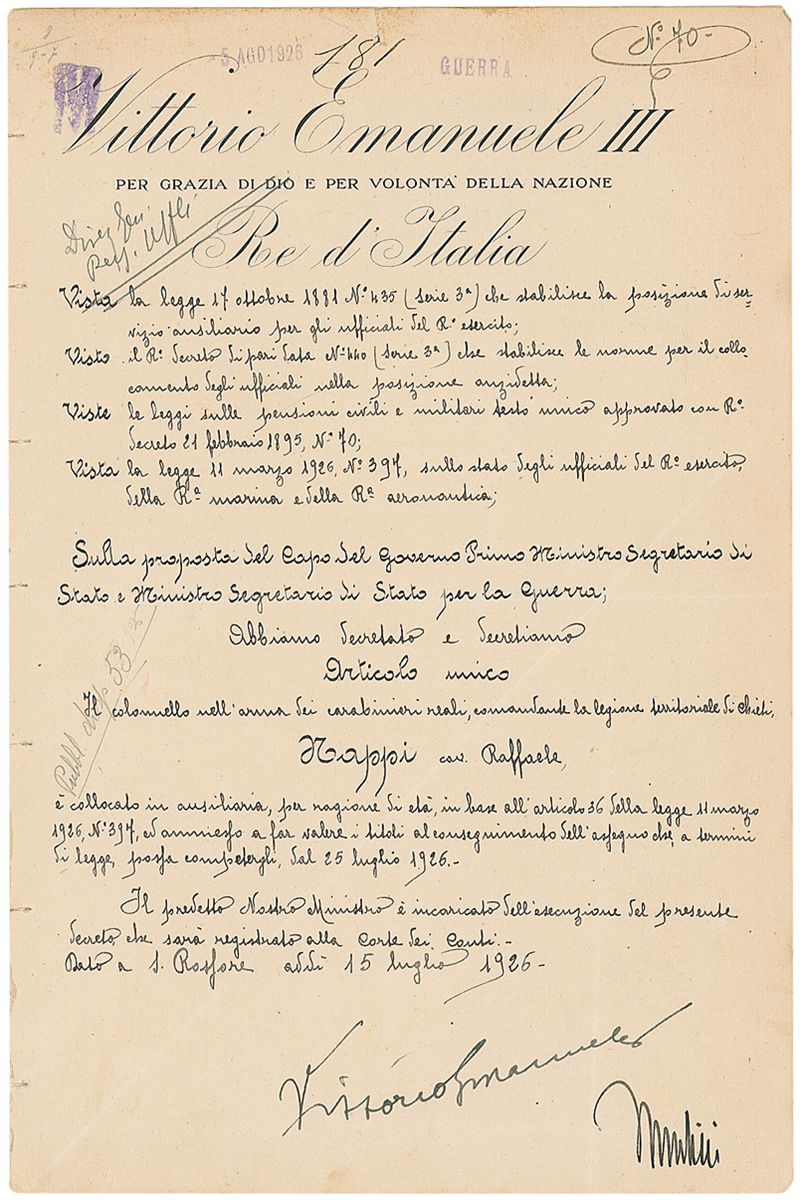 8
9-7
5 AGO 1926
181
GUERRA
Nº 70-
Vittorio Emanuele III
PER GRAZIA DI DIO E PER VOLONTA' DELLA NAZIONE
Re d'Italia
Vista la legge 17 ottobre 1881 Nº 435 (serie 3ª) che stabilisce la posizione di ser-
vizio ausiliario per gli ufficiali del Rº esercito;
Visto il Rº decreto di pari data Nº 440 (serie 3ª) che stabilisce le norme per il collo-
camento degli ufficiali nella posizione anzidetta;
Viste le leggi sulle pensioni civili e militari testo unico approvato con Rº
decreto 21 febbraio 1895, Nº 70;
Vista la legge 11 marzo 1926, Nº 397, sullo stato degli ufficiali del Rº esercito,
della Rª marina e della Rª aeronautica;
Sulla proposta del Capo del Governo Primo Ministro Segretario di
Stato e Ministro Segretario di Stato per la Guerra;
Abbiamo decretato e decretiamo
Articolo unico
Il colonnello nell'arma dei carabinieri reali, comandante la legione territoriale di Chieti,
Nappi cav. Raffaele,
è collocato in ausiliaria, per ragione di età, in base all'articolo 36 della legge 11 marzo
1926, Nº 397, ed ammesso a far valere i titoli al conseguimento dell'assegno che, a termini
di legge, possa competergli, dal 25 luglio 1926.-
Il predetto Nostro Ministro è incaricato dell'esecuzione del presente
decreto, che sarà registrato alla Corte dei Conti.-
Dato a S. Rossore addì 15 luglio 1926-
Vittorio Emanuele
Mussolini